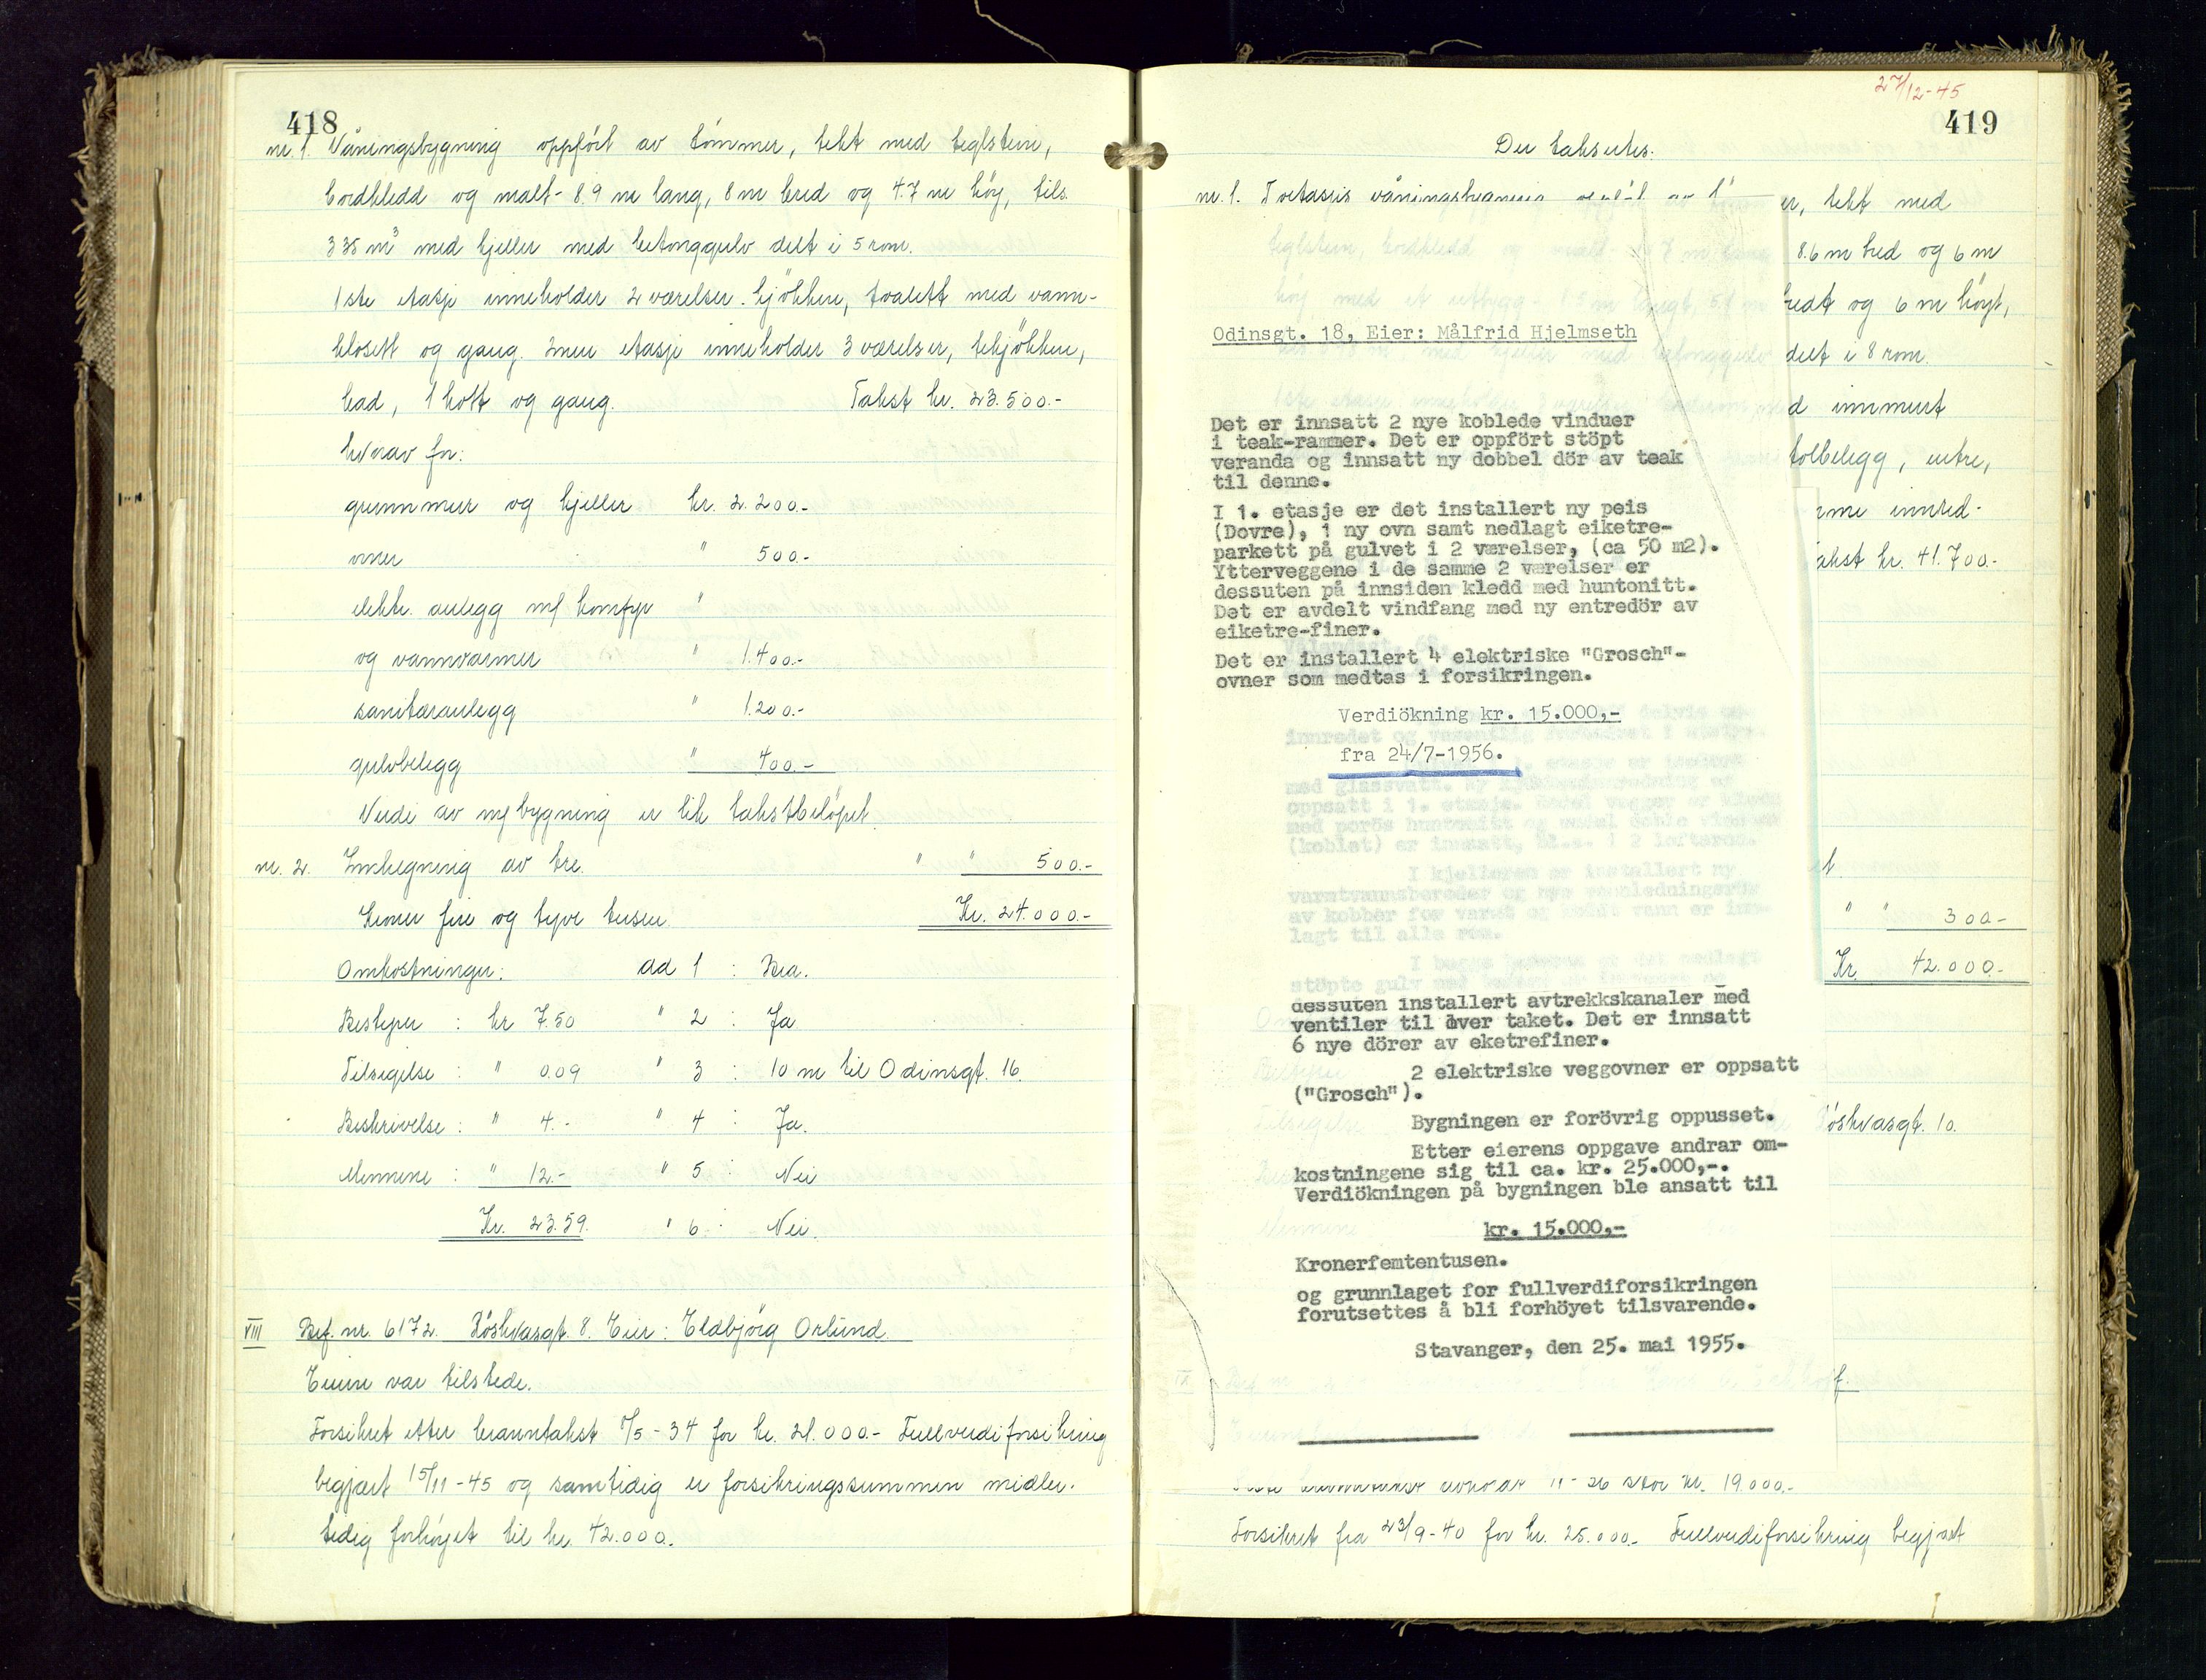 418
nr. 1. Våningsbygning oppfört av tömmer, tekt med teglstein,
bordkledd og malt - 8.9 m lang, 8 m bred og 4.7 m höy, tils.
335 m³ med kjeller med betonggulv delt i 5 rom.
1ste etasje inneholder 2 værelser, kjökken, toalett med vann-
klosett og gang. 2nen etasje inneholder 3 værelser, tekjökken,
bad, 1 kott og gang. Takst kr. 23.500.-
hvorav for:
grunnmur og kjeller kr. 2.200.-
ovner " 500.-
elektr. anlegg m/ komfyr "
og vannvarmer " 1.400.-
sanitæranlegg " 1.200.-
gulvbelegg " 400.-
Verdi av ny bygning er lik takstbelöpet.
nr. 2. Innhegning av tre. " " 500.-
Kroner fire og tyve tusen. Kr. 24.000.-
Omkostninger: ad 1 : Bra.
Bestyrer : kr 7.50 " 2 : Ja
Tilsigelse : " 0.09 " 3 : 10 m til Odinsgt. 16.
Beskrivelse : " 4.- " 4 : Ja.
Mennene : " 12.- " 5 : Nei
Kr. 23.59. " 6 : Nei.
VIII Bef. nr. 6172. Röskvasgt. 8. Eier: Eldbjörg Orlund.
Eieren var tilstede.
Forsikret etter branntakst /5 - 34 for kr. 21.000.- Fullverdiforsikring
begjært 15/11 - 45 og samtidig er forsikringssummen midler-
tidig forhöyet til kr. 42.000.
27/12-45
419
Der taksertes.
nr. 1. Toetasjes våningsbygning oppfört av er, tekt med
8.6 m bred og 6 m
bredt og 6 m höyt,
delt i 8 rom.
Odinsgt. 18, Eier: Målfrid Hjelmseth
d innmurt
Det er innsatt 2 nye koblede vinduer
i teak-rammer. Det er oppfört stöpt
veranda og innsatt ny dobbel dör av teak
til denne.
tolbelegg, entre,
I 1. etasje er det installert ny peis
(Dovre), 1 ny ovn samt nedlagt eiketre-
parkett på gulvet i 2 værelser, (ca 50 m2).
Ytterveggene i de samme 2 værelser er
dessuten på innsiden kledd med huntonitt.
Det er avdelt vindfang med ny entredör av
eiketre-finer.
innred-
akst kr. 41.700.-
Det er installert 4 elektriske "Grosch"-
ovner som medtas i forsikringen.
Verdiökning kr. 15.000,-
fra 24/7-1956.
et.
" " 300.-
Kr. 42.000.-
dessuten installert avtrekkskanaler med
ventiler til över taket. Det er innsatt
6 nye dörer av eketrefiner.
2 elektriske veggovner er oppsatt
("Grosch").
Bygningen er forövrig oppusset.
Röskvasgt. 10.
Etter eierens oppgave andrar om-
kostningene sig til ca. kr. 25.000,-.
Verdiökningen på bygningen ble ansatt til
kr. 15.000,-
Kronerfemtentusen.
og grunnlaget for fullverdiforsikringen
forutsettes å bli forhöyet tilsvarende.
Stavanger, den 25. mai 1955.
kr. 19.000.-
Forsikret fra 23/9-40 for kr. 25.000.- Fullverdiforsikring begjært